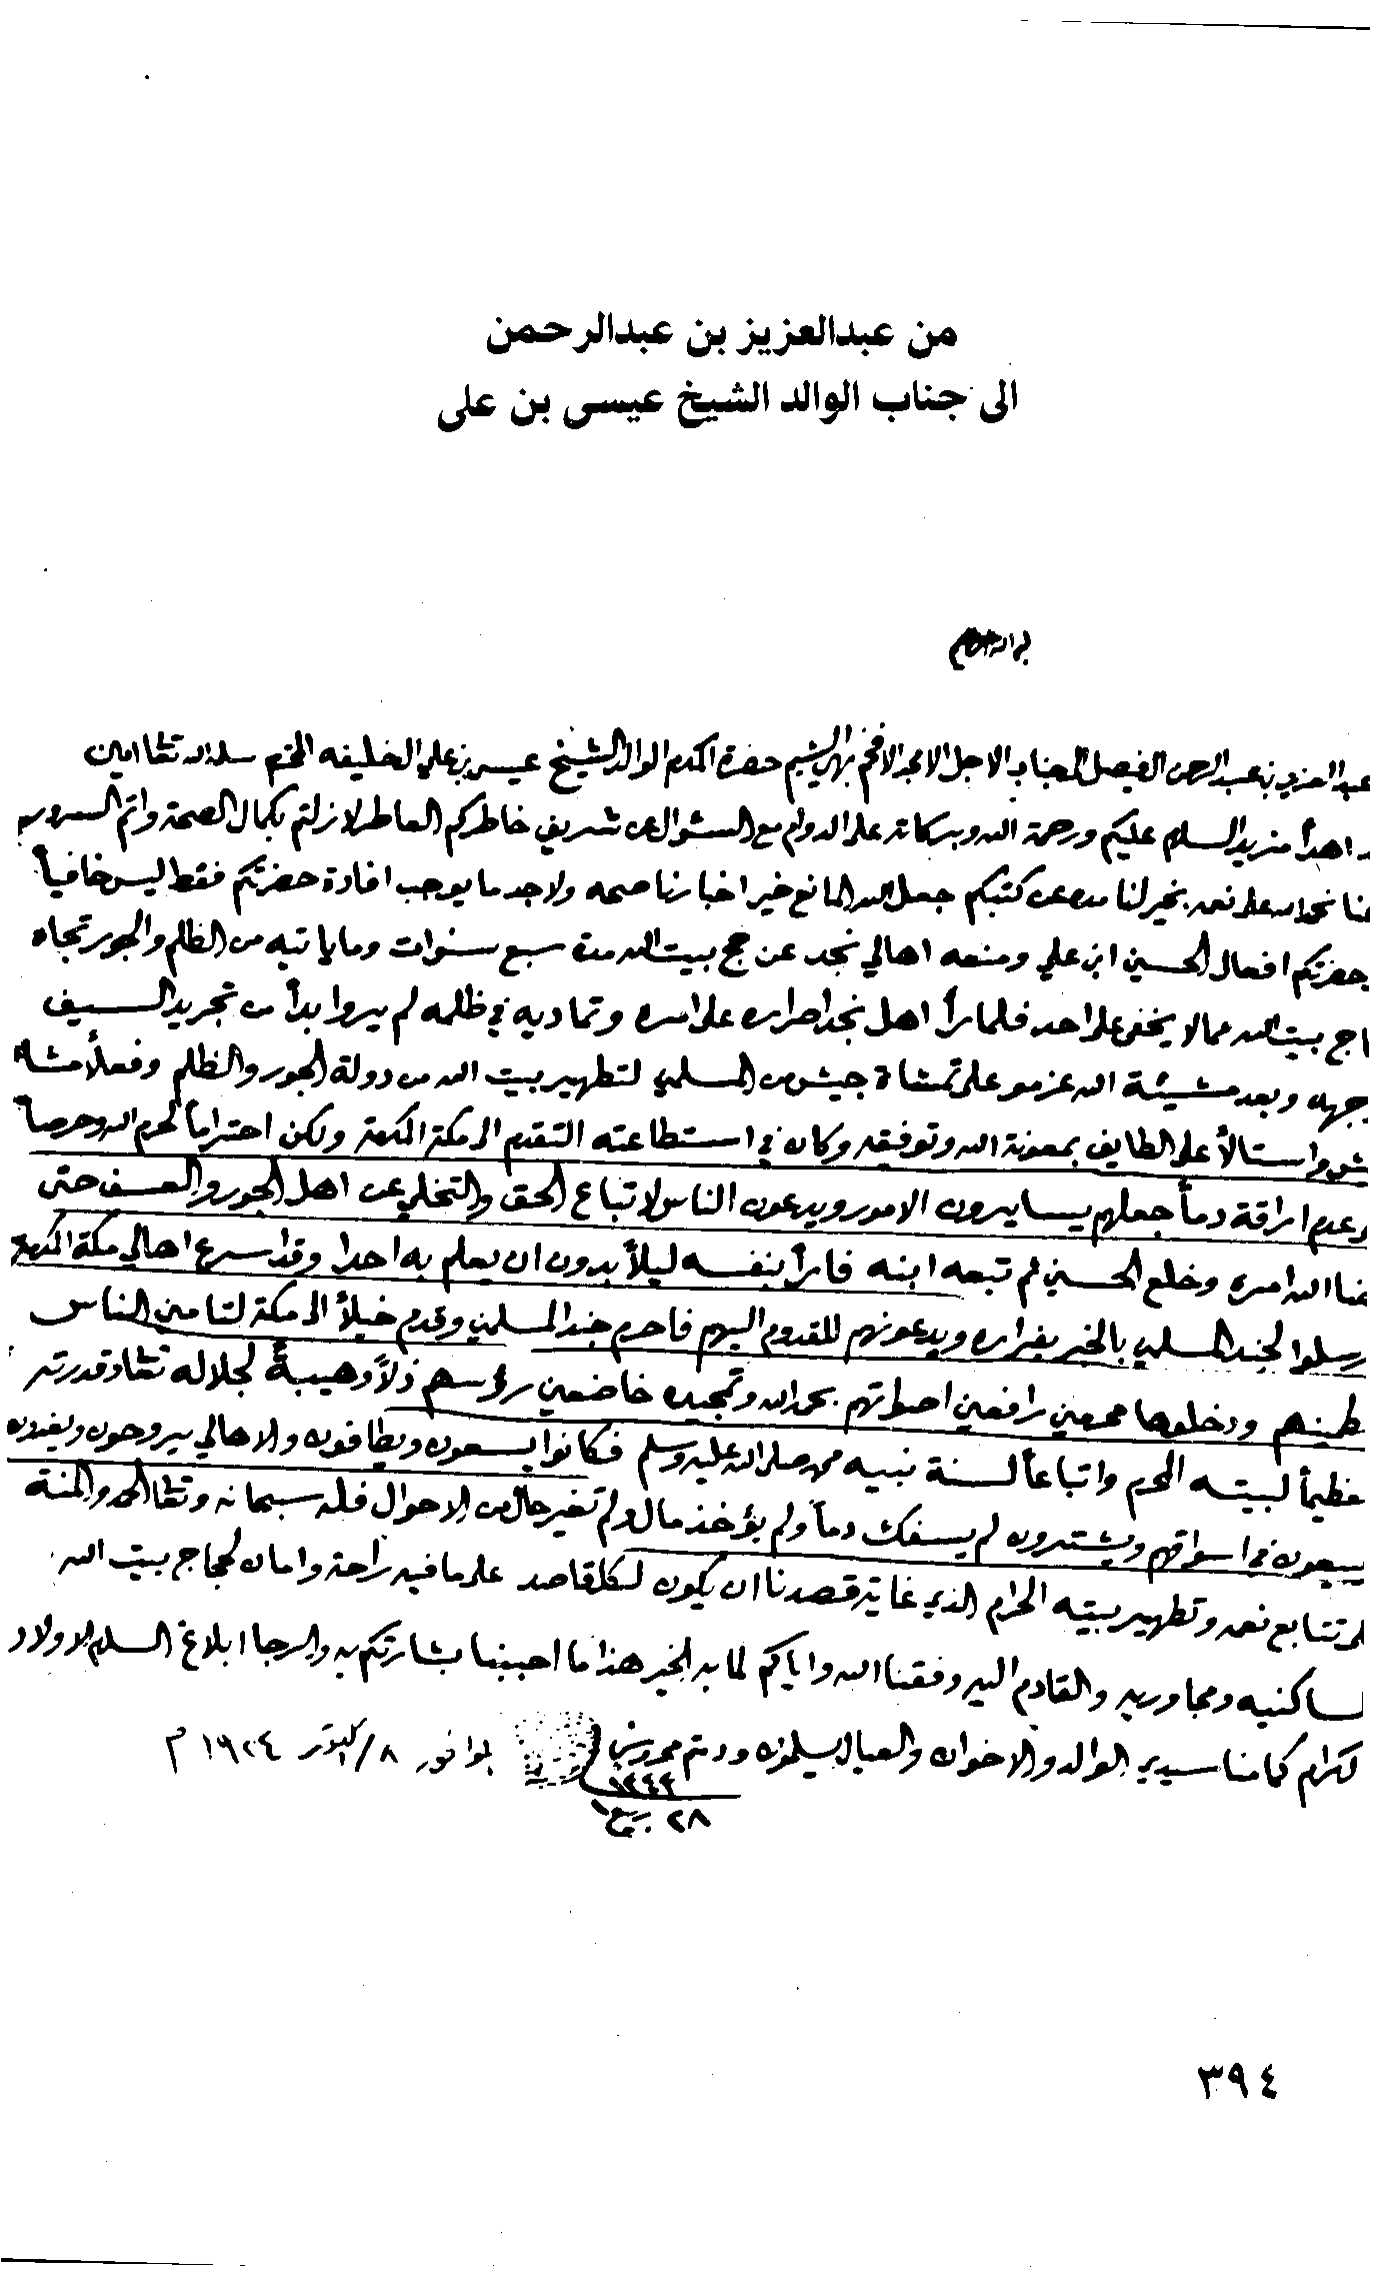 من عبدالعزيز بن عبدالرحمن
الى جناب الوالد الشيخ عيسى بن على
عبدالعزيز بن عبدالرحمن الفيصل الجناب الاجل الامجد الافخم بهي الشيم حضرة المكرم الوالد الشيخ عيسى بن علي الخليفه المحترم سلمه الله تعالى امين
اهدأ مزيد السلام عليكم ورحمة الله وبركاته على الدوام مع السؤال عن شريف خاطركم العاطر لا زلتم بكمال الصحة واتم السرور
نحمد الله على نعمه بخير لنا مده عن كتبكم جعل الله المانع خير اخبارنا صحه ولا جد ما يوجب افادة حضرتكم فقط ليس خافياً
حضرتكم افعال الحسين ابن علي ومنعه اهالي نجد عن حج بيت الله مدة سبع سنوات وما ياتيه من الظلم والجور تجاه
اج بيت الله مما لا يخفى على احد فلما رأ اهل نجد اصراره على امره وتماديه في ظلمه لم يروا بدأ من تجريد السيف
بوجهه وبعد مشيئة الله عزمو على تمشاة جيش من المسلمين لتطهير بيت الله من دولة الجور والظلم وفعلاً مشا
يش واستالأ على الطايف بمعونة الله وتوفيقه وكان في استطاعته التقدم الى مكة المكرمة ولكن احتراماً لحرم الله وحرصاً
وعدم اراقة دمأ جعلهم يسايرون الامور ويدعون الناس لاتباع الحق والتخلي عن اهل الجور والعسف حتى
الله امره وخلع الحسين ثم تبعه ابنه فارأ بنفسه ليلأ بدون ان يعلم به احدا وقد اسرع اهالي مكة المكرمة
رسلوا لجند المسلمين بالخبر بفراره ويدعونهم للقدوم اليهم فاحرم جند المسلمين وتقدم خيلأ الى مكة لتامين الناس
طينهم ودخلوها محرمين رافعين اصواتهم بحمد الله وتمجيده خاضعين رؤسهم ذلاً وهيبةً لجلاله تعالى وقدرته
عظيمأ لبيته المحرم واتباعاً لسنة نبيه محمد صلى الله عليه وسلم فكانوا يسعون ويطافون والاهالي يروحون ويغدون
يبيعون في اسواقهم ويشترون لم يسفك دماً ولم يؤخذ مال ولم تغير حال من الاحوال فله سبحانه وتعالى الحمد والمنة
لى تتابع نعمه وتطهير بيته الحرام الذي غاية قصدنا ان يكون لكل قاصد على ما فيه راحة وامان لحجاج بيت الله
لساكنيه ومجاوريه والقادم اليه وفقنا الله واياكم لما به الخير هذا ما احببنا بشارتكم به والرجا ابلاغ السلام الاولاد
لكرام كما منا سيدي الوالد والاخوان والعيال يسلمون ودمتم محروسين
الموافق ٨/اكتوبر ١٩٢٤ م
١٣٤٣
٢٨ ربيع١
٣٩٤